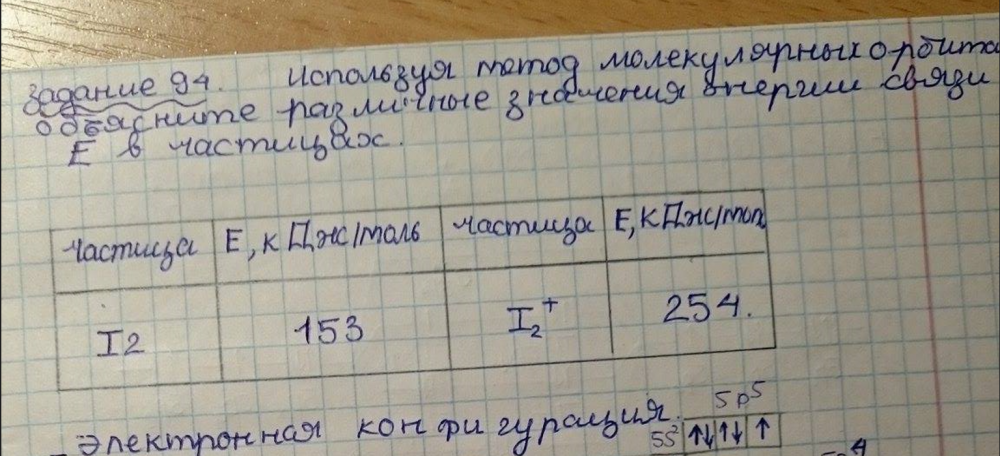 Задание 94. Используя метод молекулярных орбита
объясните различные значения энергии связи
E в частицах.
частица E, кДж/моль частица E, кДж/мол
I2 153 I₂⁺ 254.
Электронная конфигурация. 5p⁵
5s² ↑↓ ↑↓ ↑